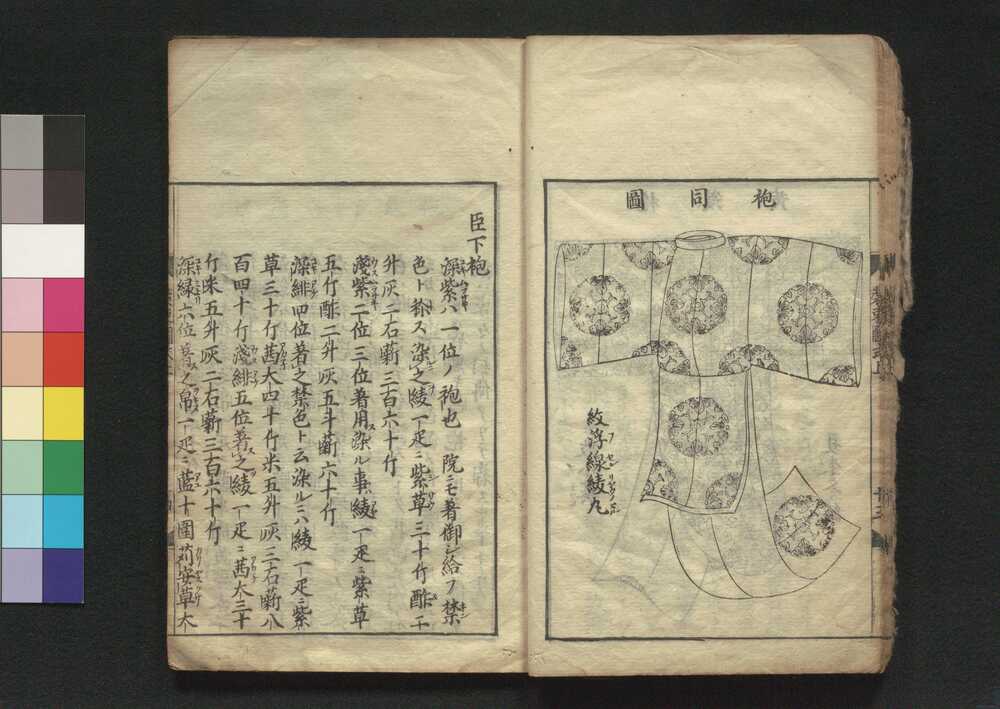 袍同圖
紋浮線綾丸
臣下袍
深紫ハ一位ノ袍也 院ニモ著御シ給フ禁
色ト称ス染之綾一疋ニ紫草三十斤酢二
升灰二石薪三百六十斤
淺紫二位三位著用染ル事綾一疋ニ紫草
五斤酢二升灰五斗薪六十斤
深緋四位著之禁色ト云染ルニハ綾一疋ニ紫
草三十斤茜大四十斤米五升灰三石薪八
百四十斤淺緋五位著之綾一疋ニ茜大三十
斤米五升灰二石薪三百六十斤
深緑六位著之帛一疋ニ藍十圍苅安草大